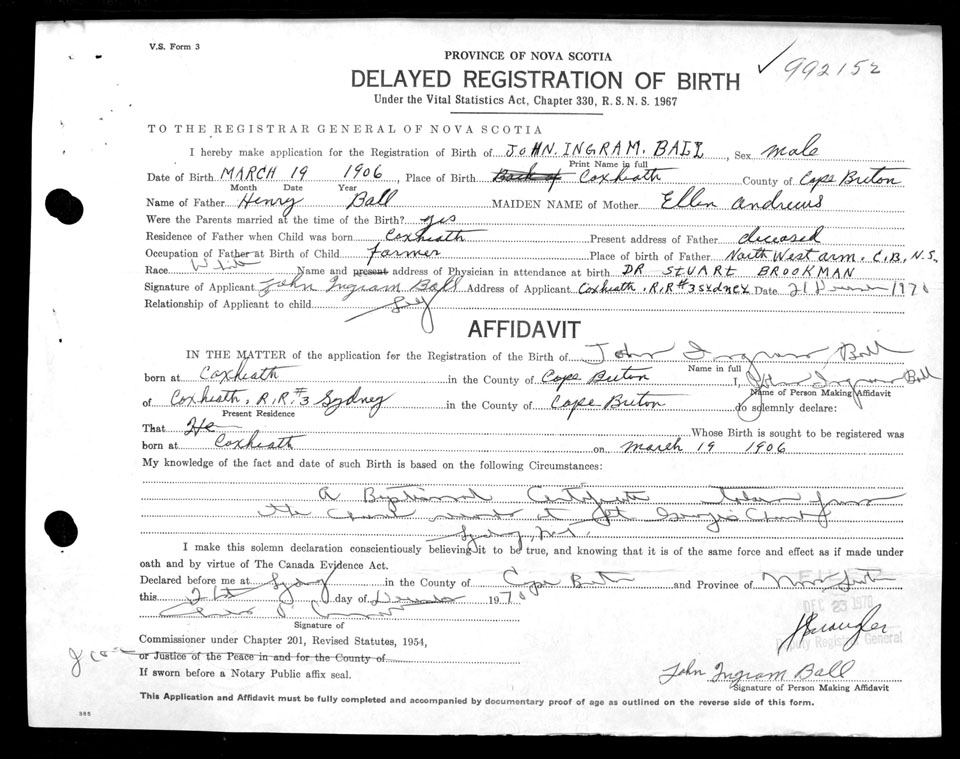 V.S. Form 3
PROVINCE OF NOVA SCOTIA
992152
DELAYED REGISTRATION OF BIRTH
Under the Vital Statistics Act, Chapter 330, R.S.N.S. 1967
TO THE REGISTRAR GENERAL OF NOVA SCOTIA
I hereby make application for the Registration of Birth of JOHN. INGRAM. BALL, Sex male
Print Name in full
Date of Birth MARCH 19 1906, Place of Birth Coxheath County of Cape Breton
Month Date Year
Name of Father Henry Ball MAIDEN NAME of Mother Ellen Andrews
Were the Parents married at the time of the Birth? yes
Residence of Father when Child was born Coxheath Present address of Father deceased
Occupation of Father at Birth of Child Farmer Place of birth of Father North West arm. C.B, N.S.
Race White Name and present address of Physician in attendance at birth DR STUART BROOKMAN
Signature of Applicant John Ingram Ball Address of Applicant Coxheath, R,R#3 SYDNEY Date 21 1970
Relationship of Applicant to child
AFFIDAVIT
IN THE MATTER of the application for the Registration of the Birth of John Ingram Ball
Name in full
born at Coxheath in the County of Cape Breton I, John Ingram Ball
Name of Person Making Affidavit
of Coxheath, R.R.#3 Sydney in the County of Cape Breton do solemnly declare:
Present Residence
That He Whose Birth is sought to be registered was
born at Coxheath on March 19 1906
My knowledge of the fact and date of such Birth is based on the following Circumstances:
A Baptismal Certificate taken from
the Church records at St George's Church
Sydney, N.S.
I make this solemn declaration conscientiously believing it to be true, and knowing that it is of the same force and effect as if made under
oath and by virtue of The Canada Evidence Act.
Declared before me at Sydney in the County of Cape Breton and Province of Nova Scotia
this 21st day of December 1970
DEC 23 1970
Signature of
Deputy Registrar General
Commissioner under Chapter 201, Revised Statutes, 1954,
or Justice of the Peace in and for the County of
If sworn before a Notary Public affix seal.
John Ingram Ball
Signature of Person Making Affidavit
This Application and Affidavit must be fully completed and accompanied by documentary proof of age as outlined on the reverse side of this form.